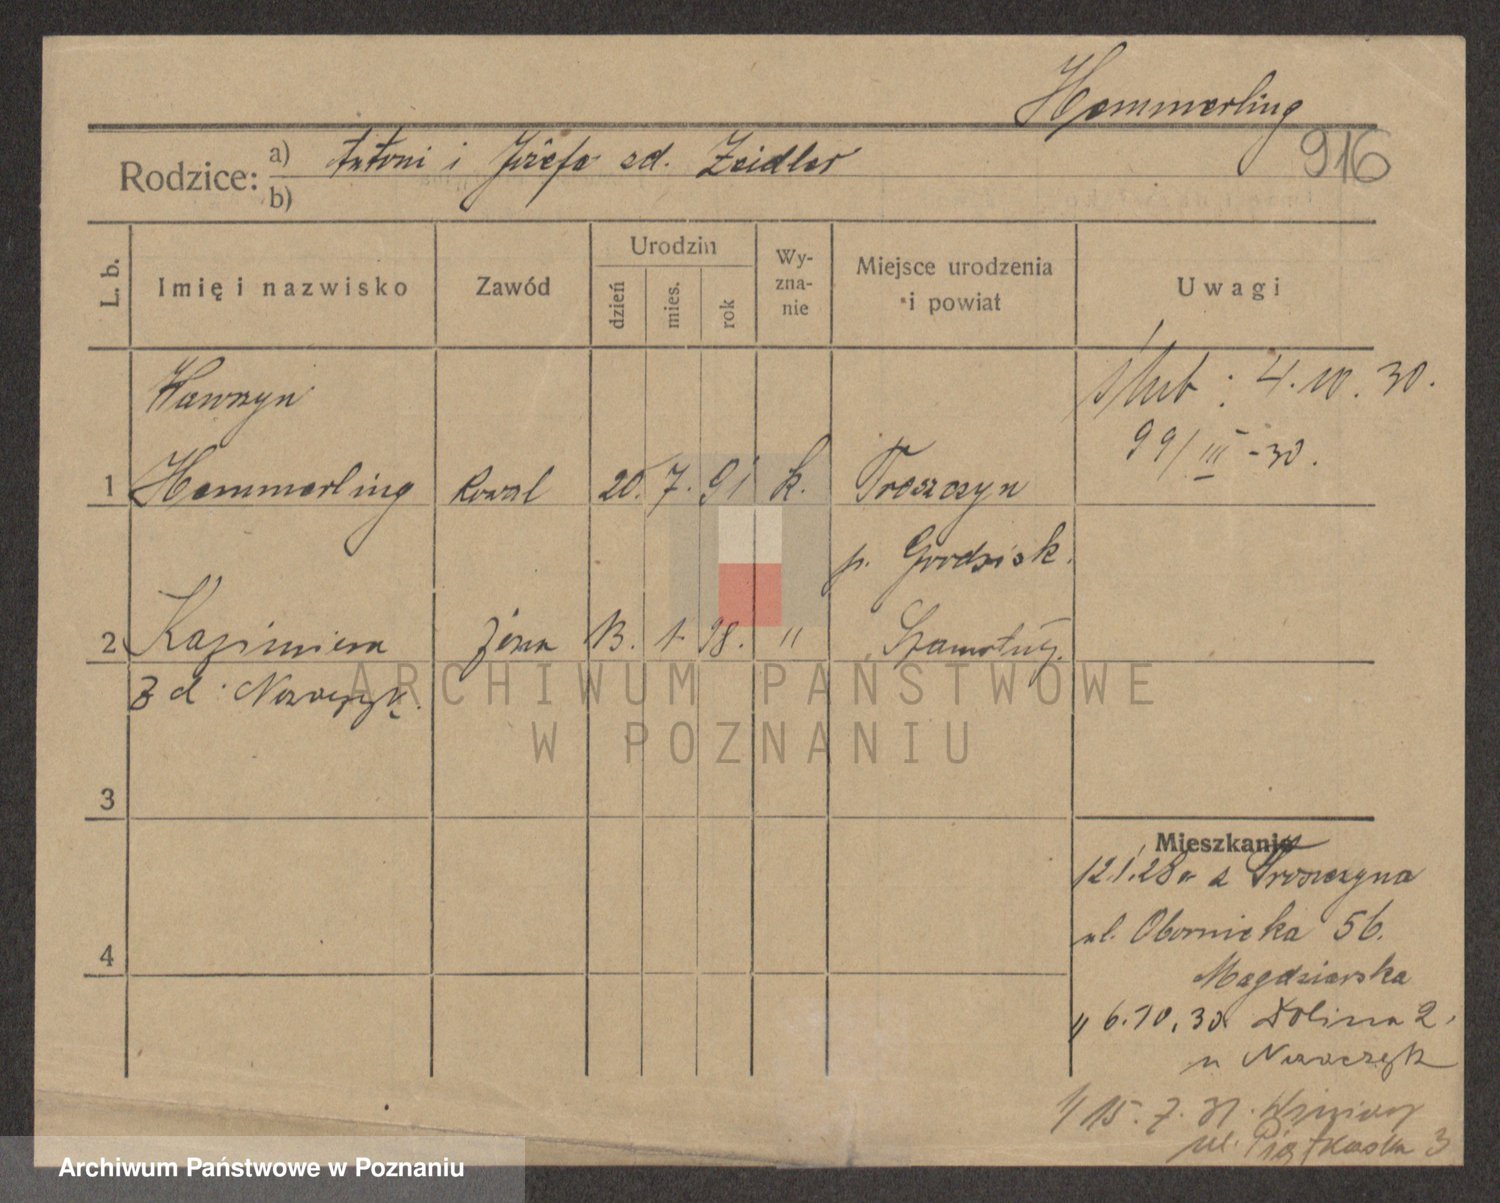 Hemmerling
916
Rodzice: a) Antoni i Józefa zd. Zeidler
b)
L. b.
Imię i nazwisko
Zawód
Urodzin
dzień
mies.
rok
Wy-
zna-
nie
Miejsce urodzenia
i powiat
Uwagi
Wawrzyn
ślub : 4. 10. 30.
99/III - 30.
1 Hemmerling kowal 20. 7. 91 k. Troszczyn
p. Grodzisk.
2 Kazimiera żona 13. 1. 98. " Szamotuły.
zd. Nowaczyk.
ARCHIWUM PAŃSTWOWE
W POZNANIU
3
Mieszkanie
12.1.28 r z Troszczyna
ul. Obornicka 56.
4
Magdziarska
6.10.30. Dolina 2.
u Nowaczyk
15. 7. 31. Winiary
ul. Piątkowska 3
Archiwum Państwowe w Poznaniu